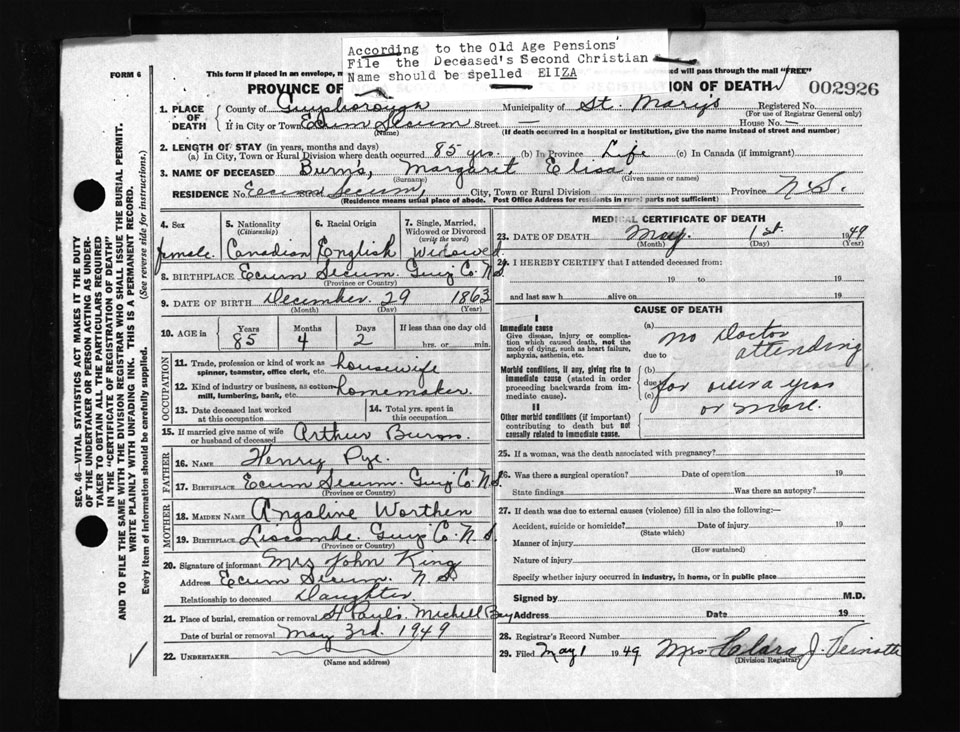 According to the Old Age Pensions'
File the Deceased's Second Christian
Name should be spelled ELIZA
FORM 6
This form if placed in an envelope, ed will pass through the mail "FREE"
PROVINCE OF ION OF DEATH
002926
1. PLACE OF DEATH
County of Guysborough Municipality of St. Mary's Registered No.
(For use of Registrar General only)
If in City or Town Ecum Secum Street — House No. —
(Name) (If death occurred in a hospital or institution, give the name instead of street and number)
2. LENGTH OF STAY (in years, months and days)
(a) In City, Town or Rural Division where death occurred 85 yrs. (b) In Province Life (c) In Canada (if immigrant)
3. NAME OF DECEASED Burns, Margaret Elisa.
(Surname) (Given name or names)
RESIDENCE No. Ecum Secum, City, Town or Rural Division Province N.S.
(Residence means usual place of abode. Post Office Address for residents in rural parts not sufficient)
4. Sex
female.
5. Nationality
(Citizenship)
Canadian
6. Racial Origin
English
7. Single, Married,
Widowed or Divorced
(write the word)
Widowed.
8. BIRTHPLACE Ecum Secum. Guy Co. N.S.
(Province or Country)
9. DATE OF BIRTH December. 29 1863
(Month) (Day) (Year)
10. AGE in Years Months Days If less than one day old
85 4 2 hrs. or min.
OCCUPATION
11. Trade, profession or kind of work as housewife
spinner, teamster, office clerk, etc.
12. Kind of industry or business, as cotton
mill, lumbering, bank, etc. homemaker.
13. Date deceased last worked
at this occupation
14. Total yrs. spent in
this occupation
15. If married give name of wife
or husband of deceased Arthur Burns.
FATHER
16. NAME Henry Pye.
17. BIRTHPLACE Ecum Secum. Guy Co. N.S.
(Province or Country)
MOTHER
18. MAIDEN NAME Angaline Worthen
19. BIRTHPLACE Liscombe. Guy Co. N.S.
(Province or Country)
20. Signature of informant Mrs John King
Address Ecum Secum. N.S.
Relationship to deceased Daughter.
21. Place of burial, cremation or removal St Paul's. Michell Bay
Date of burial or removal May 3rd. 1949
22. UNDERTAKER
(Name and address)
MEDICAL CERTIFICATE OF DEATH
23. DATE OF DEATH May 1st. 1949
(Month) (Day) (Year)
24. I HEREBY CERTIFY that I attended deceased from:
19 to 19
and last saw h alive on 19
CAUSE OF DEATH
I
Immediate cause
Give disease, injury or complica-
tion which caused death, not the
mode of dying, such as heart failure,
asphyxia, asthenia, etc.
Morbid conditions, if any, giving rise to
immediate cause (stated in order
proceeding backwards from im-
mediate cause).
II
Other morbid conditions (if important)
contributing to death but not
causally related to immediate cause.
(a) no Doctor
due to attending
(b)
due
(c) for over a year
or more.
25. If a woman, was the death associated with pregnancy?
26. Was there a surgical operation? Date of operation 19
State findings Was there an autopsy?
27. If death was due to external causes (violence) fill in also the following:—
Accident, suicide or homicide? Date of injury 19
(State which)
Manner of injury
(How sustained)
Nature of injury
Specify whether injury occurred in industry, in home, or in public place
Signed by M.D.
Address Date 19
28. Registrar's Record Number
29. Filed May 1 1949 Mrs Clara J. Veinotte
(Division Registrar)
SEC. 46—VITAL STATISTICS ACT MAKES IT THE DUTY
OF THE UNDERTAKER OR PERSON ACTING AS UNDER-
TAKER TO OBTAIN ALL THE PARTICULARS REQUIRED
IN THE "CERTIFICATE OF REGISTRATION OF DEATH"
AND TO FILE THE SAME WITH THE DIVISION REGISTRAR WHO SHALL ISSUE THE BURIAL PERMIT.
WRITE PLAINLY WITH UNFADING INK. THIS IS A PERMANENT RECORD.
Every item of information should be carefully supplied. (See reverse side for instructions.)